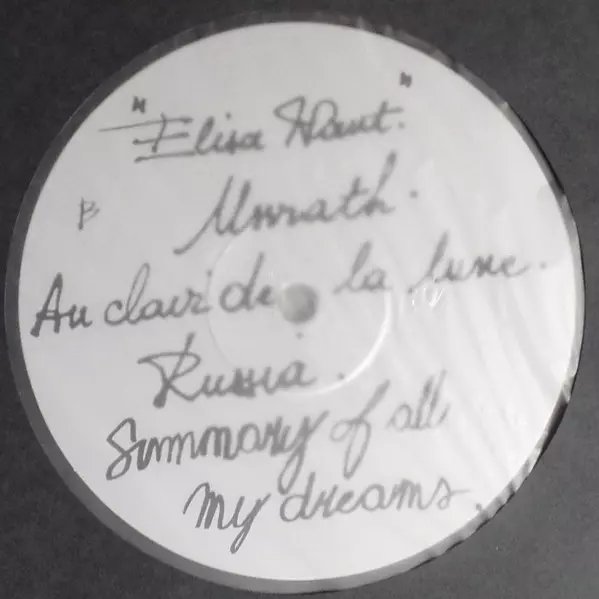 "Elisa Waut."
B
Unrath.
Au clair de la lune.
Russia.
Summary of all
my dreams.